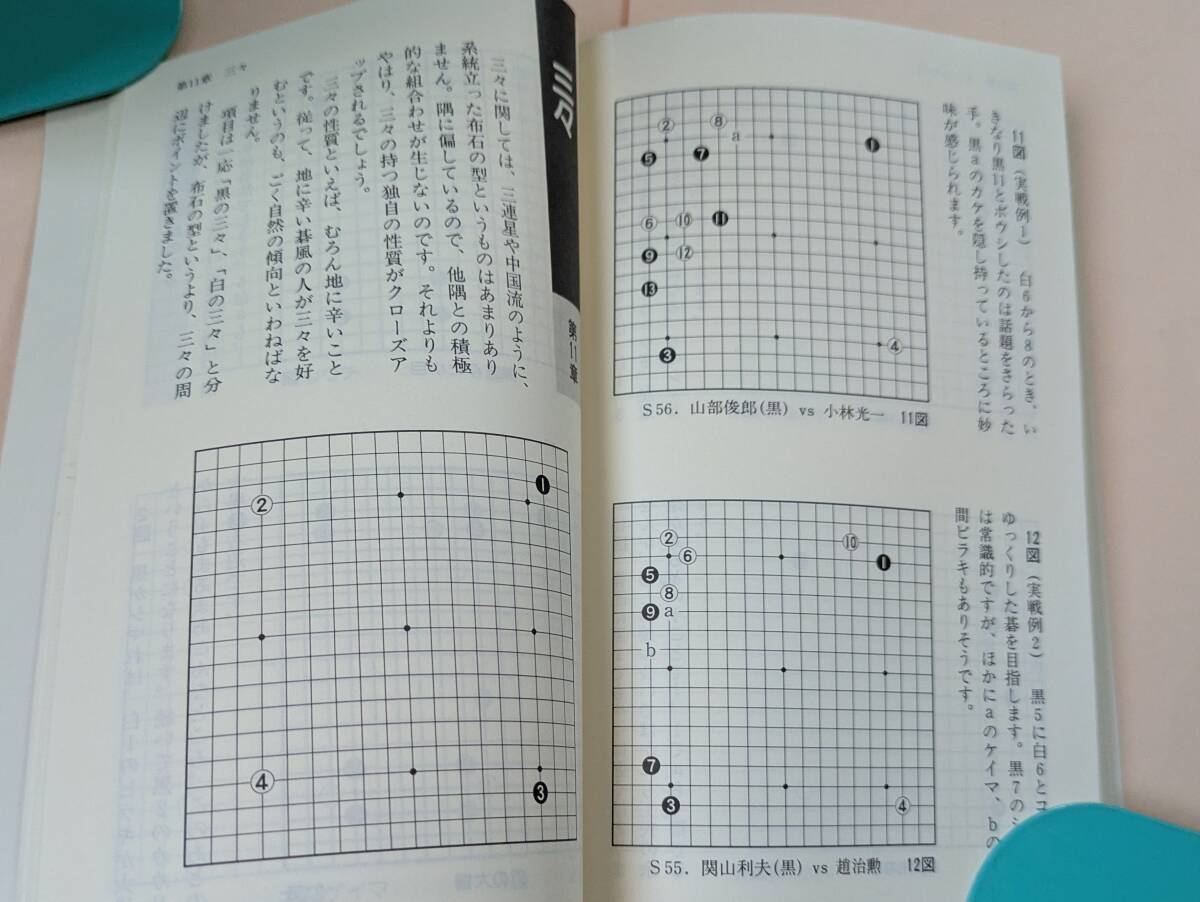 11図(実戦例1) 白6から8のとき、い
きなり黒11とボウシしたのは話題をさらった
手。黒aのカケを隠し持っているところに妙
味が感じられます。
② ⑧ a ❶
❺ ❼
⑥ ⑩ ⓫
❾ ⑫
⓭
❸ ④
S56. 山部俊郎(黒) vs 小林光一 11図
12図(実戦例2) 黒5に白6とコ
ゆっくりした碁を目指します。黒7の
は常識的ですが、ほかにaのケイマ、bの
間ビラキもありそうです。
② ⑩
⑥ ❶
❺
⑧
❾ a
b
❼
❸ ④
S55. 関山利夫(黒) vs 趙治勲 12図
三々
第11章
三々に関しては、三連星や中国流のように、
系統立った布石の型というものはあまりあり
ません。隅に偏しているので、他隅との積極
的な組合わせが生じないのです。それよりも
やはり、三々の持つ独自の性質がクローズア
ップされるでしょう。
三々の性質といえば、むろん地に辛いこと
です。従って、地に辛い碁風の人が三々を好
むというのも、ごく自然の傾向といわねばな
りません。
項目は一応「黒の三々」、「白の三々」と分
けましたが、布石の型というより、三々の周
辺にポイントを置きました。
第11章 三々
② ❶
④ ❸